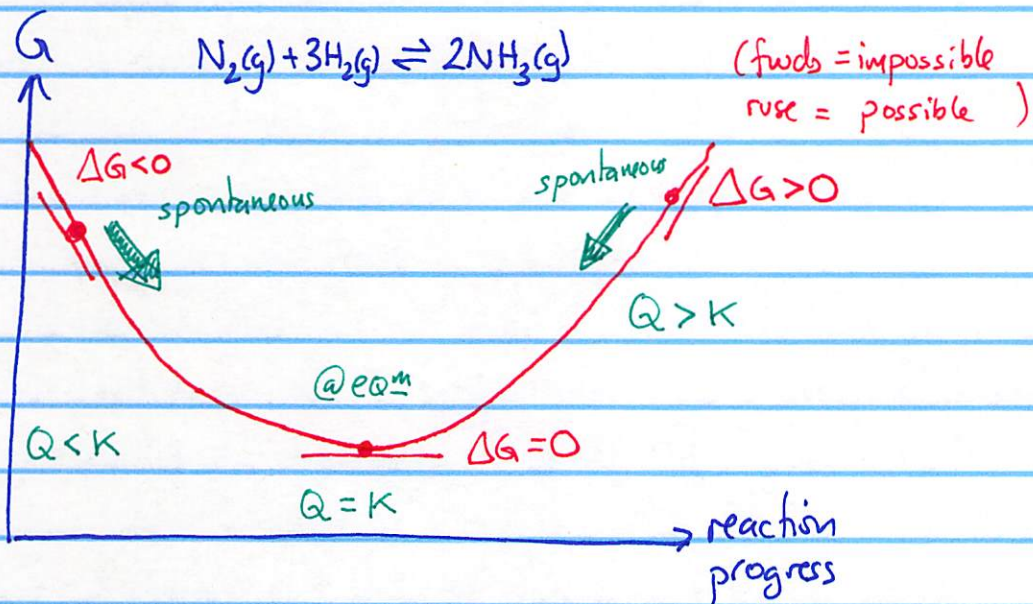 G
N₂(g) + 3H₂(g) ⇌ 2NH₃(g)
(fwds = impossible
rvse = possible )
ΔG<0
spontaneous
spontaneous
ΔG>0
Q > K
@eqm
Q < K
ΔG=0
Q = K
reaction
progress